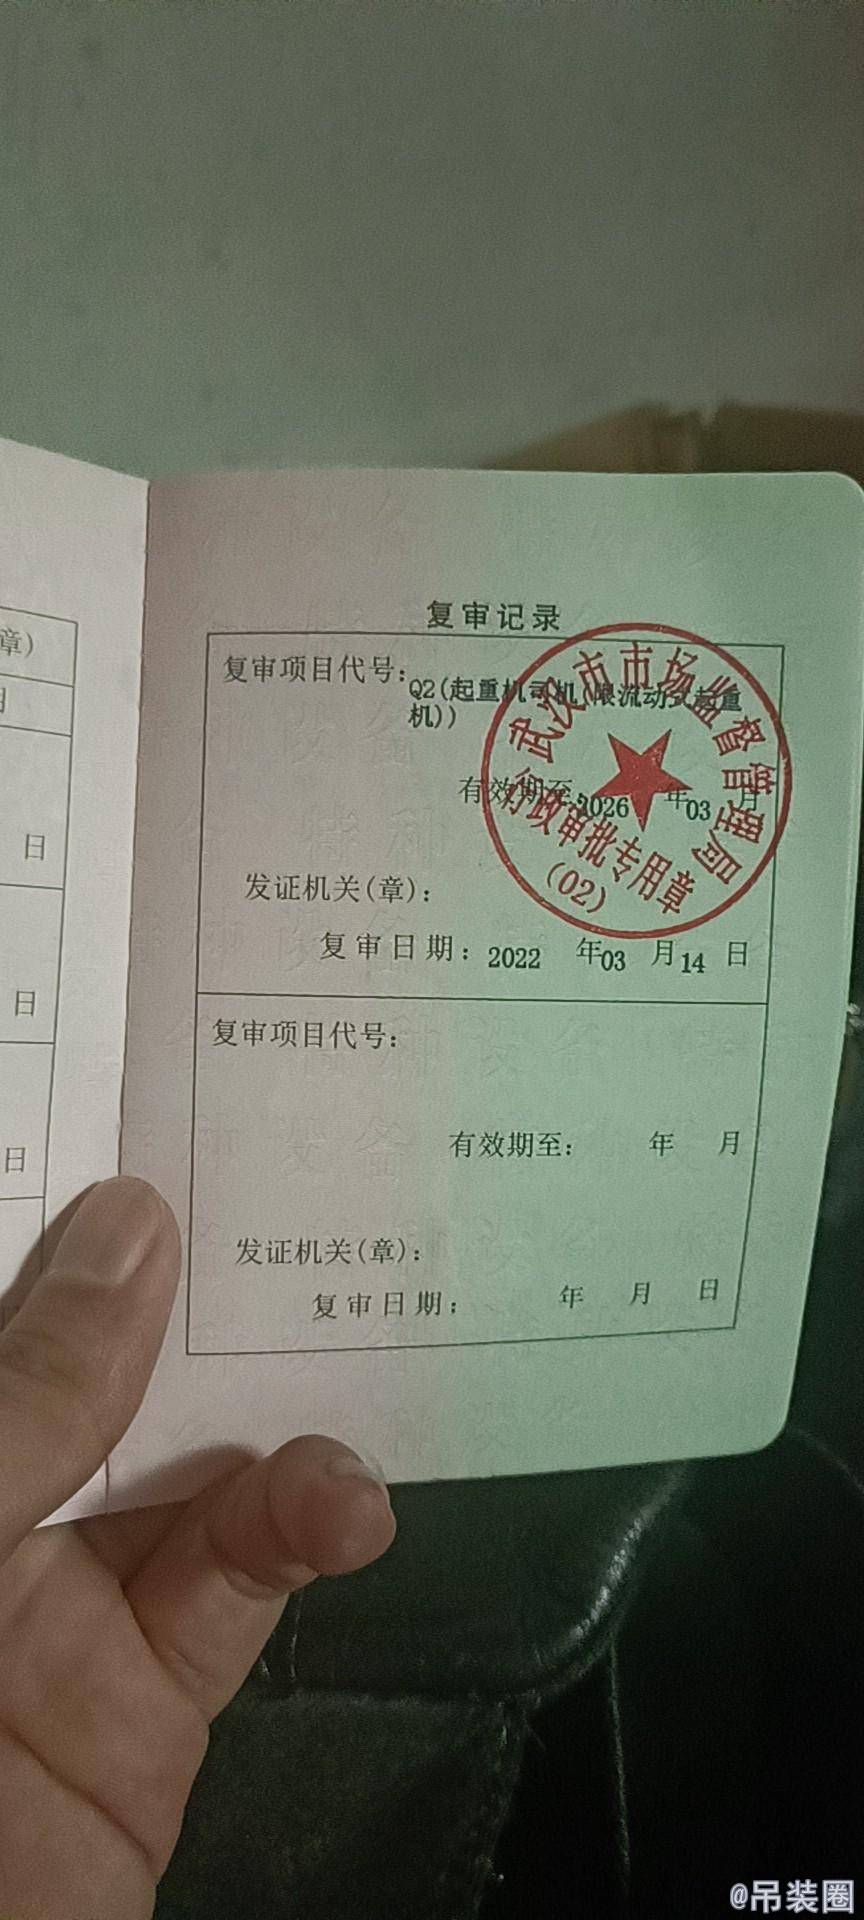 章)
月
日
日
日
复审记录
复审项目代号：
Q2(起重机司机(限流动式起重
机))
有效期至：2026 年03 月
发证机关(章)：
复审日期：2022 年03 月14 日
武汉市市场监督管理局
行政审批专用章
(02)
复审项目代号：
有效期至： 年 月
发证机关(章)：
复审日期： 年 月 日
@吊装圈